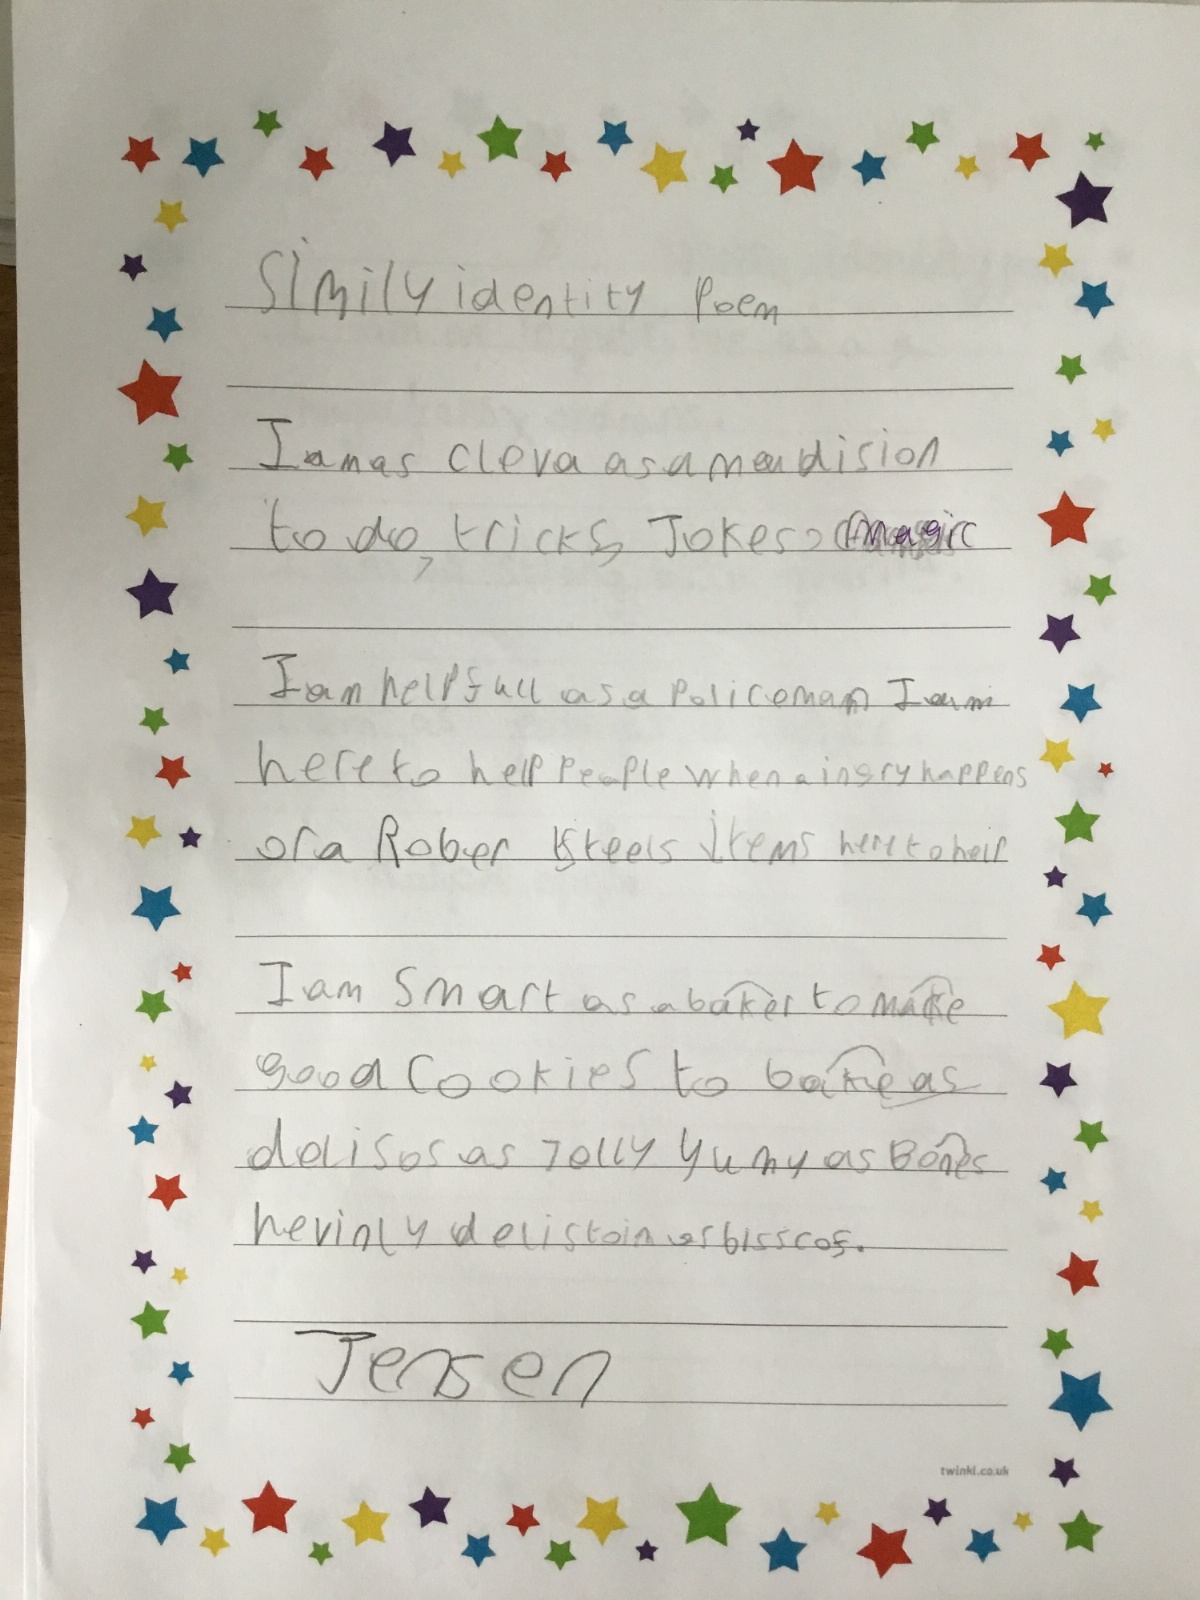 Simily identity Poem
I am as cleva as a mandision
to do, tricks, Jokes, magic
I am helpfull as a Policeman I am
here to help People when a ingry happens
or a Rober steels items here to help
I am Smart as a baker to make
good Cookies to bake as
delisos as Jolly Yumy as Bones
hevinly delistoin as bisscos.
Jensen
twinkl.co.uk